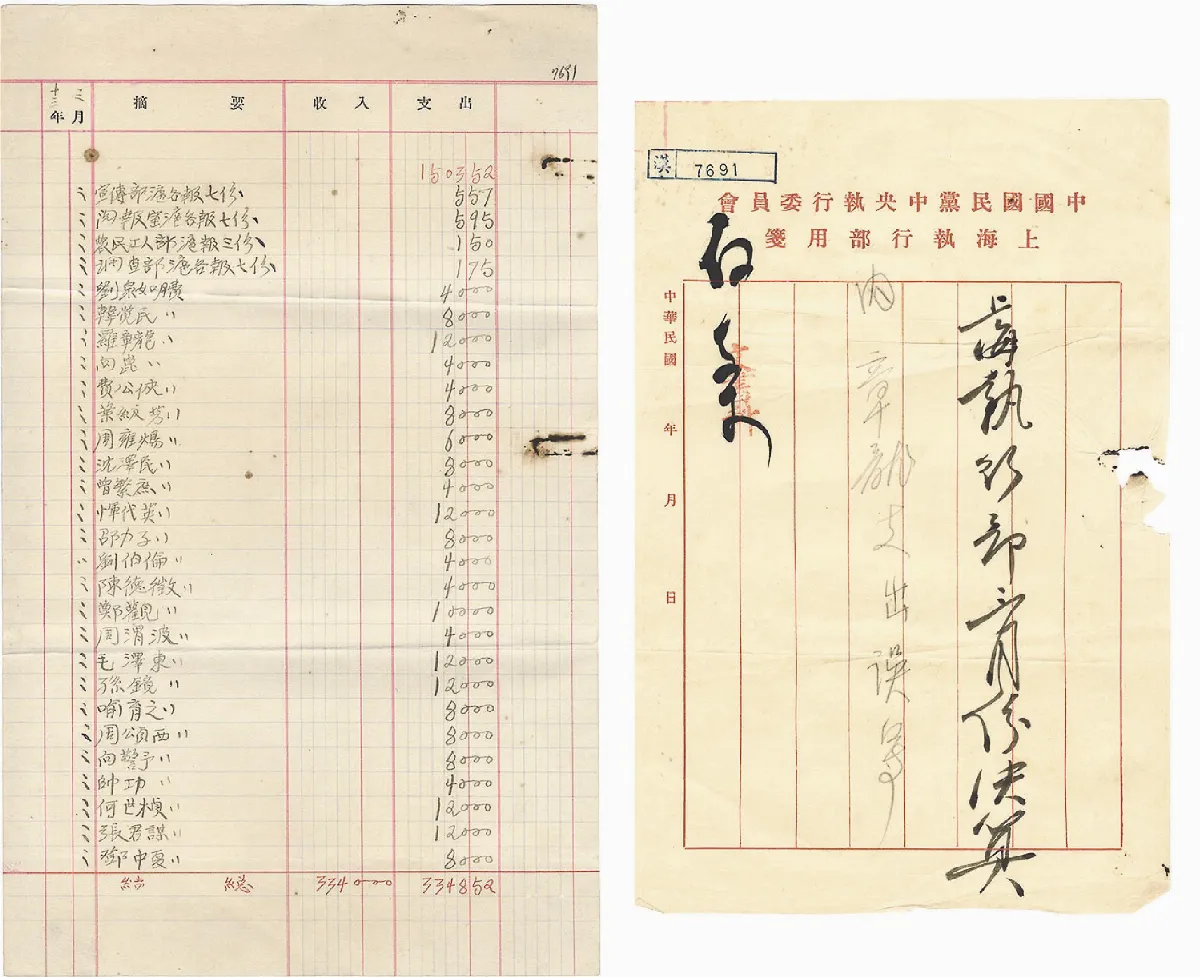 7691
十三年 三月 摘要 收入 支出
150352
宣傳部滬各報七份 557
閱報室滬各報七份 595
農民工人部滬報三份 150
調查部滬各報七份 175
4000
韓覺民〃 8000
羅章龍〃 12000
向崑〃 4000
費公俠〃 4000
葉紉芳〃 8000
周雍煬〃 6000
沈澤民〃 8000
曾繁庶〃 4000
惲代英〃 12000
邵力子〃 8000
劉伯倫〃 4000
陳德徵〃 4000
鄭觀〃 10000
周渭波〃 4000
毛澤東〃 12000
孫鏡〃 12000
喻育之〃 8000
周頌西〃 8000
向警予〃 8000
帥功〃 4000
何世楨〃 12000
張君謀〃 12000
鄧中夏〃 8000
結總 334000 334852
漢 7691
中國國民黨中央執行委員會
上海執行部用箋
上海執行部三月份決算
內章龍支出誤
存案
中華民國 年 月 日